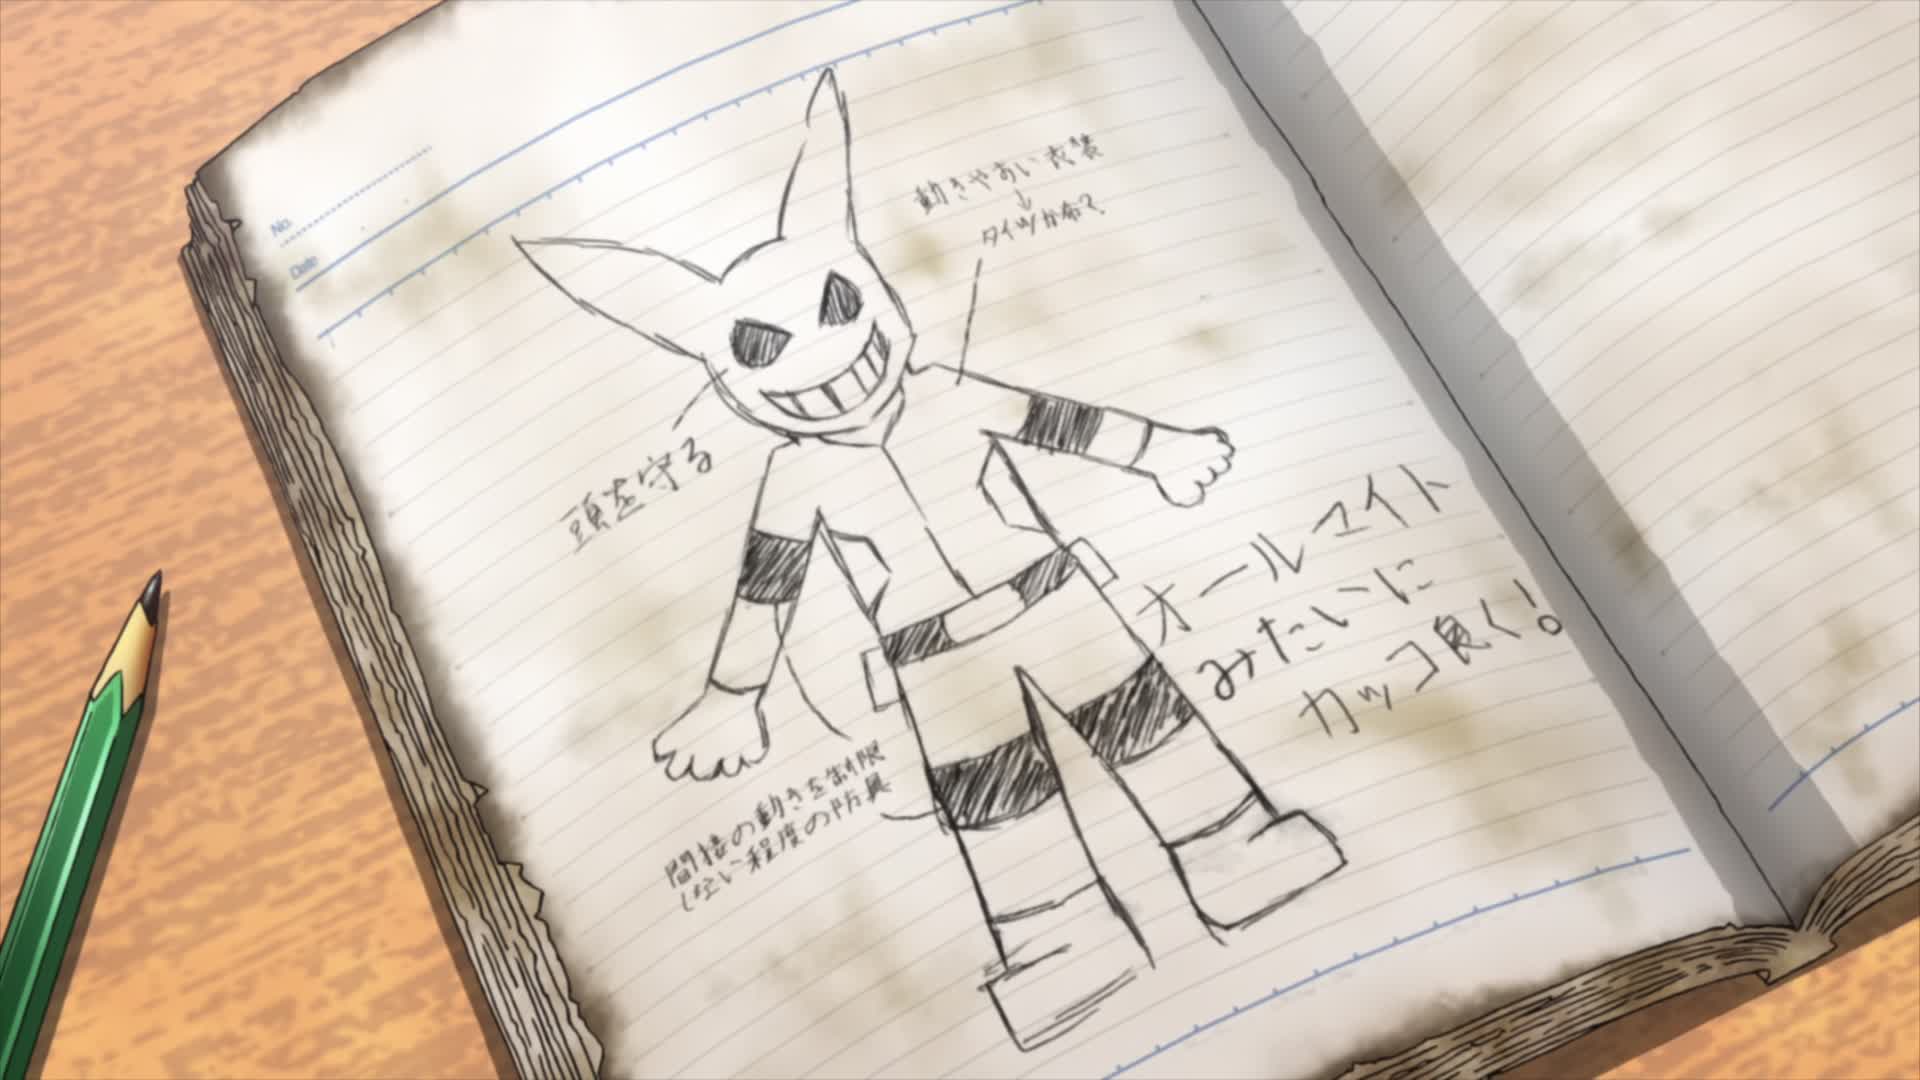 No.
Date
動きやすい衣装
↓
タイツが命？
頭を守る
オールマイト
みたいに
カッコ良く!
間接の動きを制限
しない程度の防具